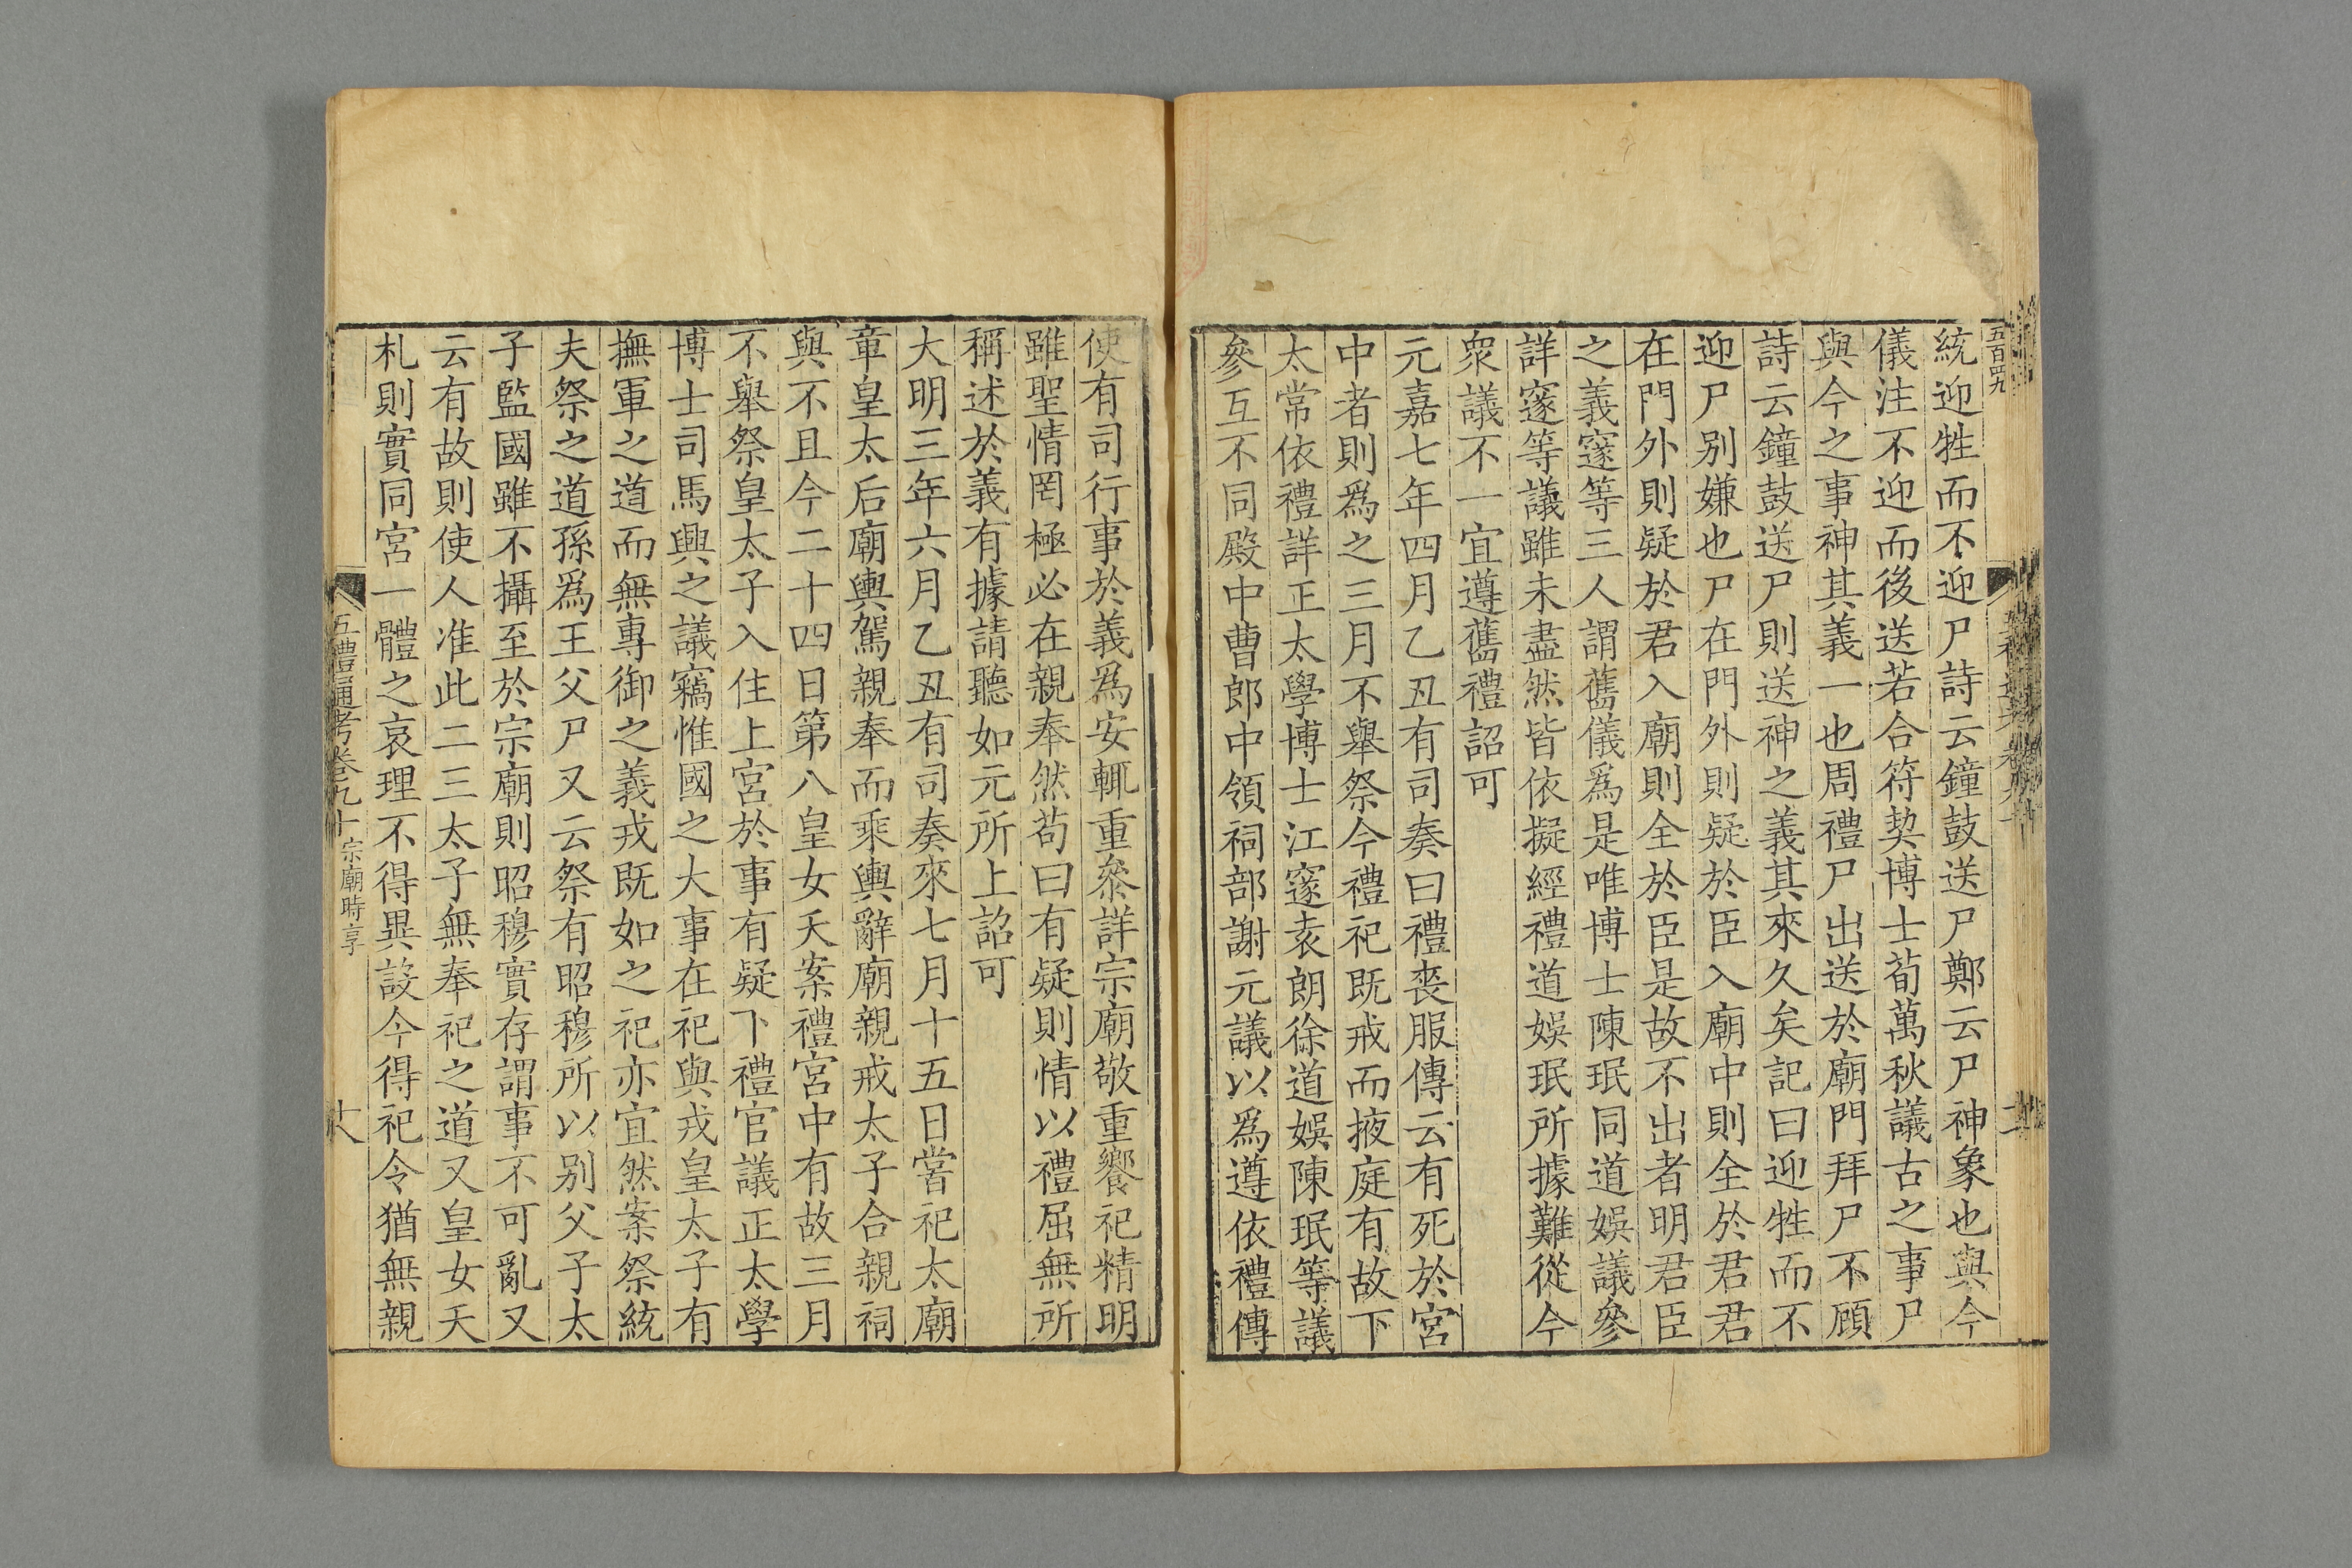 五百四九
統迎牲而不迎尸詩云鐘鼓送尸鄭云尸神象也與今
儀注不迎而後送若合符契博士荀萬秋議古之事尸
與今之事神其義一也周禮尸出送於廟門拜尸不顧
詩云鐘鼓送尸則送神之義其來久矣記曰迎牲而不
迎尸别嫌也尸在門外則疑於臣入廟中則全於君君
在門外則疑於君入廟則全於臣是故不出者明君臣
之義邃等三人謂舊儀爲是唯博士陳珉同道娛議參
詳邃等議雖未盡然皆依擬經禮道娛珉所據難從今
衆議不一宜遵舊禮詔可
元嘉七年四月乙丑有司奏曰禮喪服傳云有死於宮
中者則爲之三月不舉祭今禮祀既戒而掖庭有故下
太常依禮詳正太學博士江邃袁朗徐道娛陳珉等議
參互不同殿中曹郎中領祠部謝元議以爲遵依禮傳
使有司行事於義爲安輒重參詳宗廟敬重饗祀精明
雖聖情罔極必在親奉然苟曰有疑則情以禮屈無所
稱述於義有據請聽如元所上詔可
大明三年六月乙丑有司奏來七月十五日嘗祀太廟
章皇太后廟輿駕親奉而乘輿辭廟親戒太子合親祠
與不且今二十四日第八皇女夭案禮宮中有故三月
不舉祭皇太子入住上宮於事有疑下禮官議正太學
博士司馬興之議竊惟國之大事在祀與戎皇太子有
撫軍之道而無專御之義戎既如之祀亦宜然案祭統
夫祭之道孫爲王父尸又云祭有昭穆所以别父子太
子監國雖不攝至於宗廟則昭穆實存謂事不可亂又
云有故則使人准此二三太子無奉祀之道又皇女夭
札則實同宮一體之哀理不得異設今得祀令猶無親
五禮通考卷九十 宗廟時享 十八